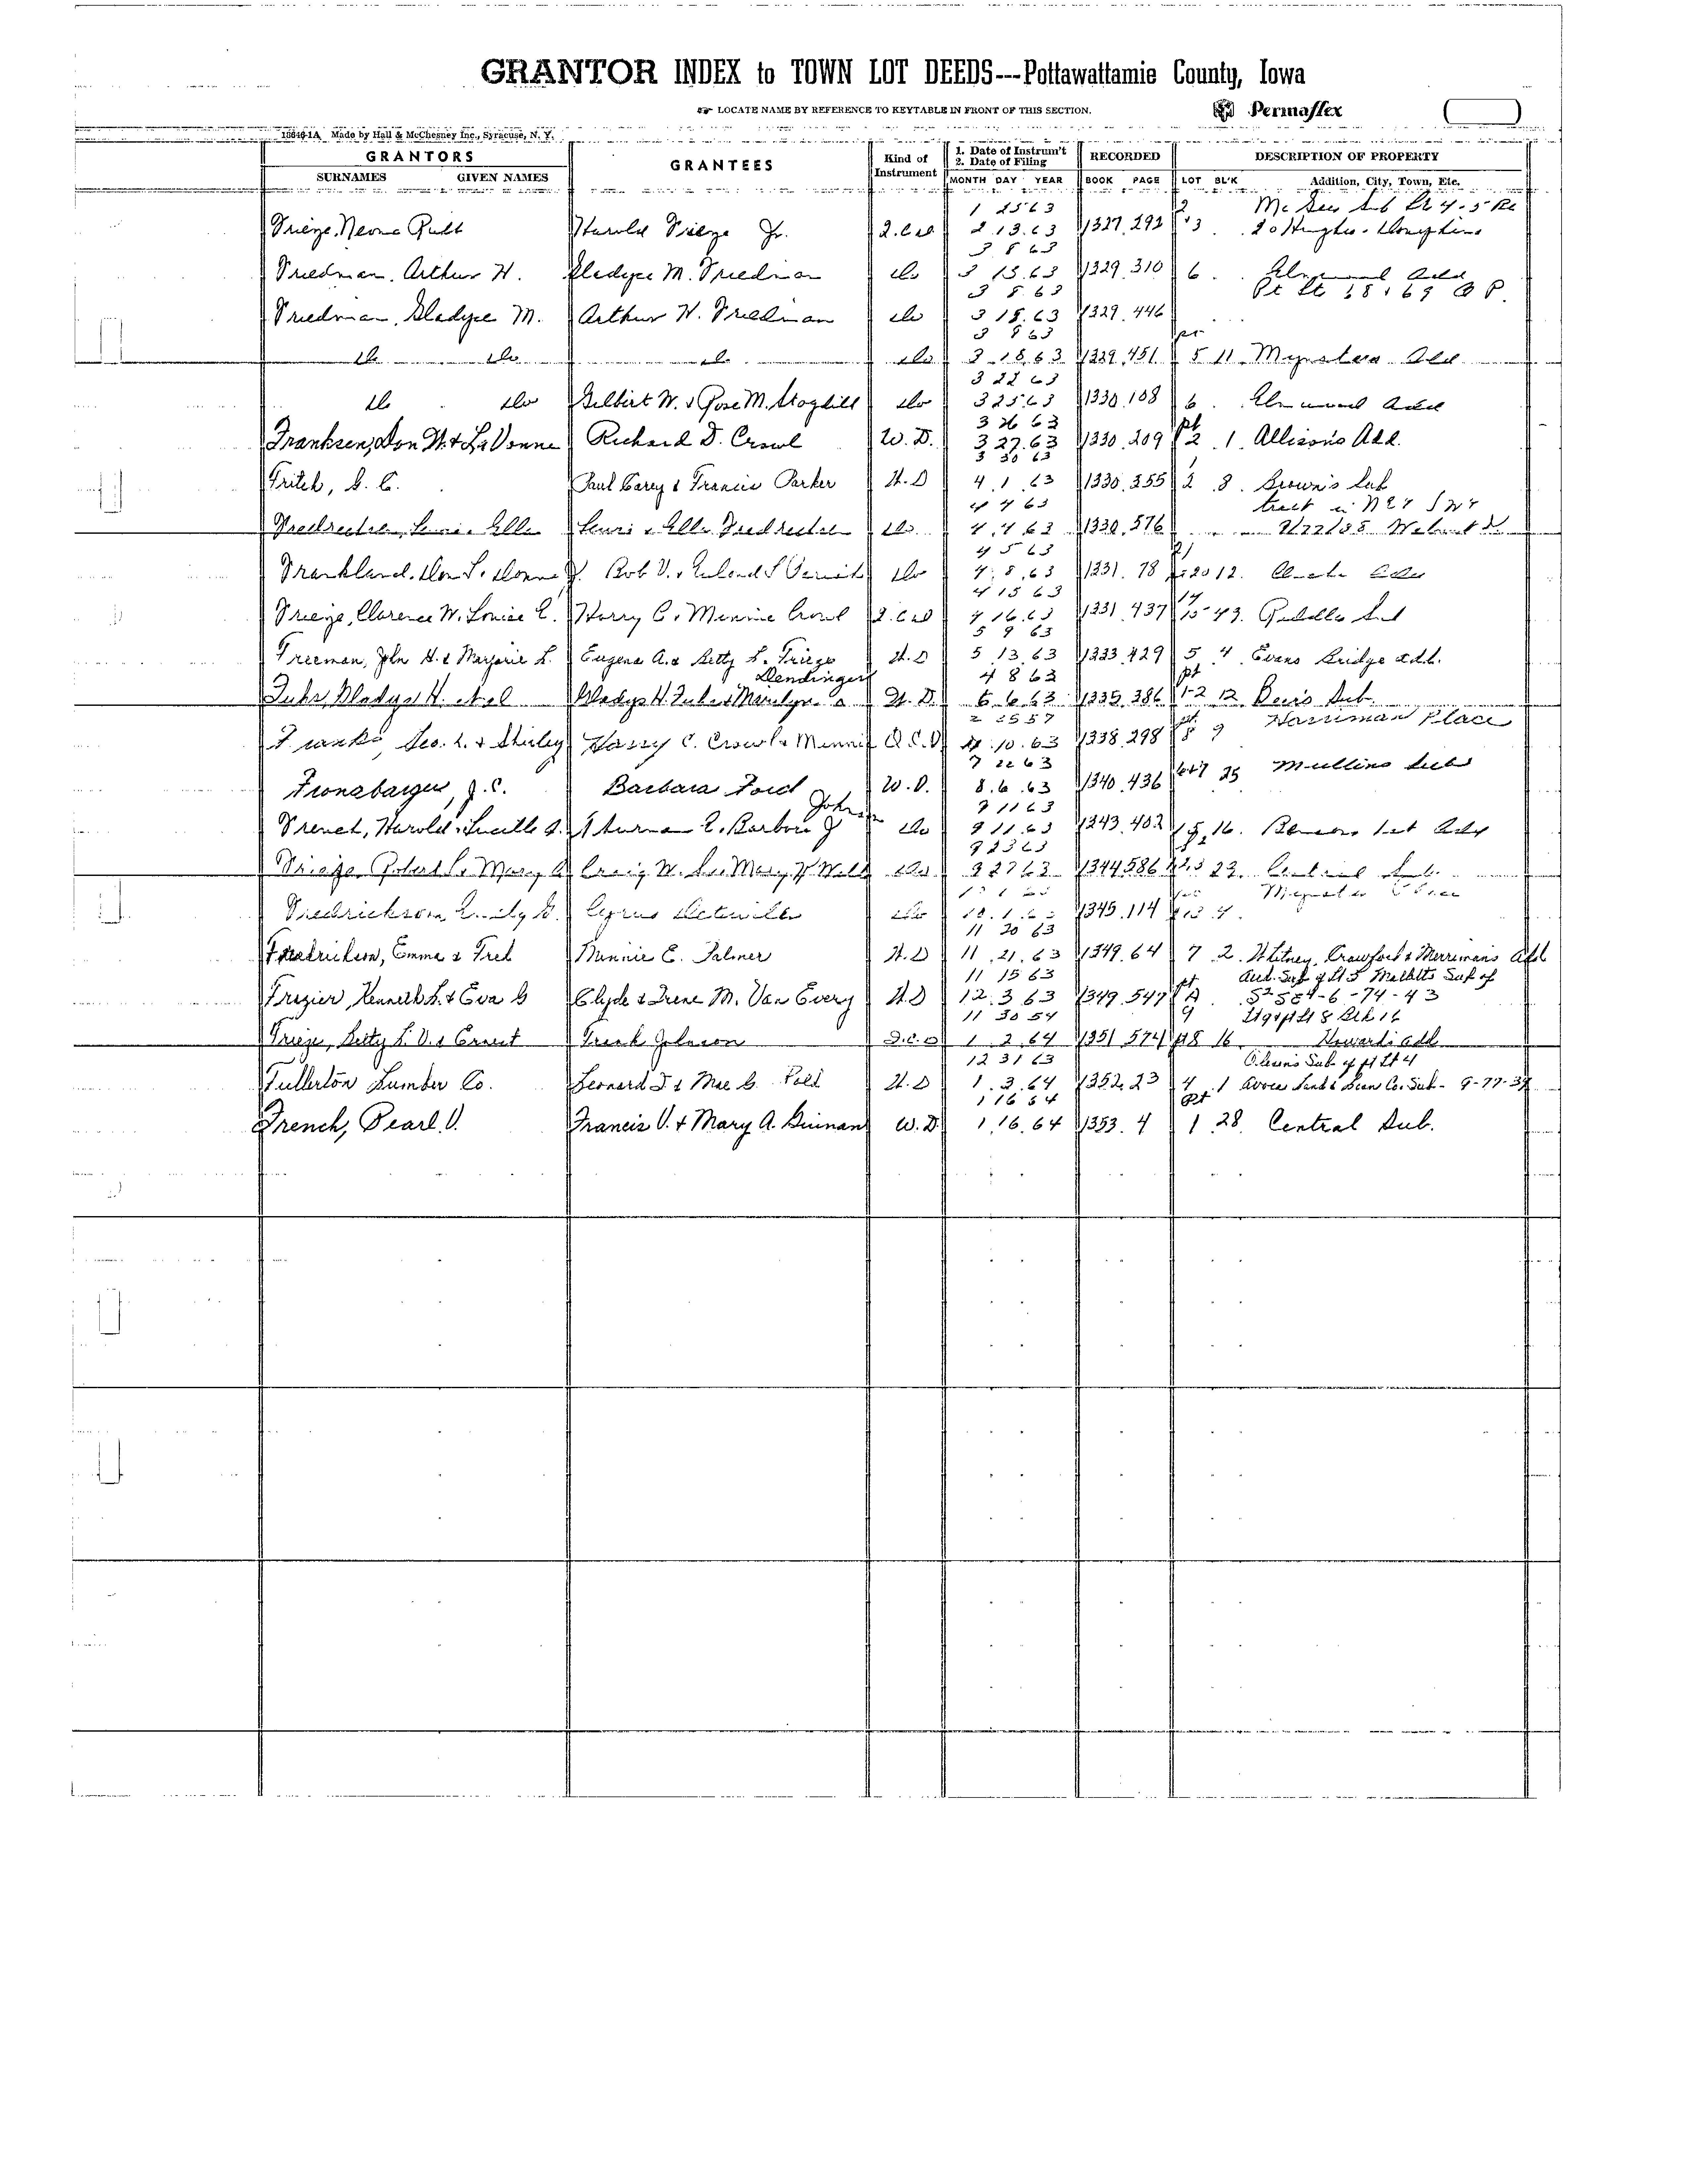 GRANTOR INDEX to TOWN LOT DEEDS---Pottawattamie County, Iowa
☞ LOCATE NAME BY REFERENCE TO KEYTABLE IN FRONT OF THIS SECTION. Permaflex
Made by Hall & McChesney Inc., Syracuse, N. Y.
GRANTORS GRANTEES Kind of Instrument 1. Date of Instrum't 2. Date of Filing RECORDED DESCRIPTION OF PROPERTY
SURNAMES GIVEN NAMES MONTH DAY YEAR BOOK PAGE LOT BL'K Addition, City, Town, Etc.
1 25 63
Frieze, Harold Frieze Jr. Q.C.D 2 13 63 1327 292
3 8 63
Friedman, Arthur H. Gladyce M. Friedman do 3 15 63 1329 310 6 Elmwood Add
3 8 63 Pt Lt 68 & 69 O P.
Friedman, Gladyce M. Arthur H. Friedman do 3 18 63 1329 446
3 8 63 pr
do do do do 3 18 63 1329 451 5 11 Mynsters Add
3 22 63
do do Gilbert W. & Rose M. Stogdill do 3 25 63 1330 108 6 Elmwood Add
3 26 63 pt
Franksen, Don W. & LaVonne Richard D. Crowl W.D. 3 27 63 1330 209 2 1 Allison's Add.
3 30 63
Fritch, G. C. Paul Carey & Francis Parker W.D 4 1 63 1330 355 2 8 Brown's Sub
4 4 63 tract in NE4 SW4
4 4 63 1330 576
4 5 63
Frankland, Don L. & Donna J. Bob V. & do 4 8 63 1331 78 12 Add
4 15 63 14
Frieze, Clarence W. Louise E. Harry C. & Minnie Crowl Q.C.D 4 16 63 1331 437 15 43 Riddles Sub
5 9 63
Freeman, John H. & Marjorie L. Eugene A. & Betty L. Frieze W.D 5 13 63 1333 429 5 4 Evans Bridge Add.
Dendinger 4 8 63 pt
Fuhr, Gladys H. et al Gladys H. Fuhr & Marilyn W.D. 6 6 63 1335 386 1-2 12 Beers Sub.
2 25 57 pt Harriman Place
Franks, Geo. L. & Shirley Harry C. Crowl & Minnie Q.C.D 10 63 1338 298 8 9
7 22 63
Fronsbarger, J.C. Barbara Ford W.D. 8 6 63 1340 436 6&7 25 Mullins Sub
John 9 11 63
French, Harold & Lucille do 9 11 63 1343 402 16 Bensons 1st Add
9 23 63
Frieze, Robert & Mary do 9 27 63 1344 586 23 Central Sub.
Fredrickson, Cyrus do 1345 114
11 20 63
Fredrickson, Emma & Fred Minnie E. Palmer W.D 11 21 63 1349 64 7 2 Whitney, Crawford & Merriman's Add
11 15 63 pt Aud. Sub of Lt 5 Sub of
Frazier, Kenneth L. & Eva B Clyde & Irene M. Van Every W.D 12 3 63 1349 547 A S2 SE4-6-74-43
11 30 54 9 Lt 9 & pt Lt 8 Blk 16
Frieze, Betty L. V. & Ernest Frank Johnson Q.C.D 1 2 64 1351 574 pt 8 16 Howards Add
12 31 63 Sub of pt Lt 4
Fullerton Lumber Co. Leonard J & Mae C. W.D 1 3 64 1352 23 4 1 Avoca Land & Loan Co. Sub-
1 16 64 Pt
French, Pearl V. Francis V. & Mary A. W.D. 1 16 64 1353 4 1 28 Central Sub.